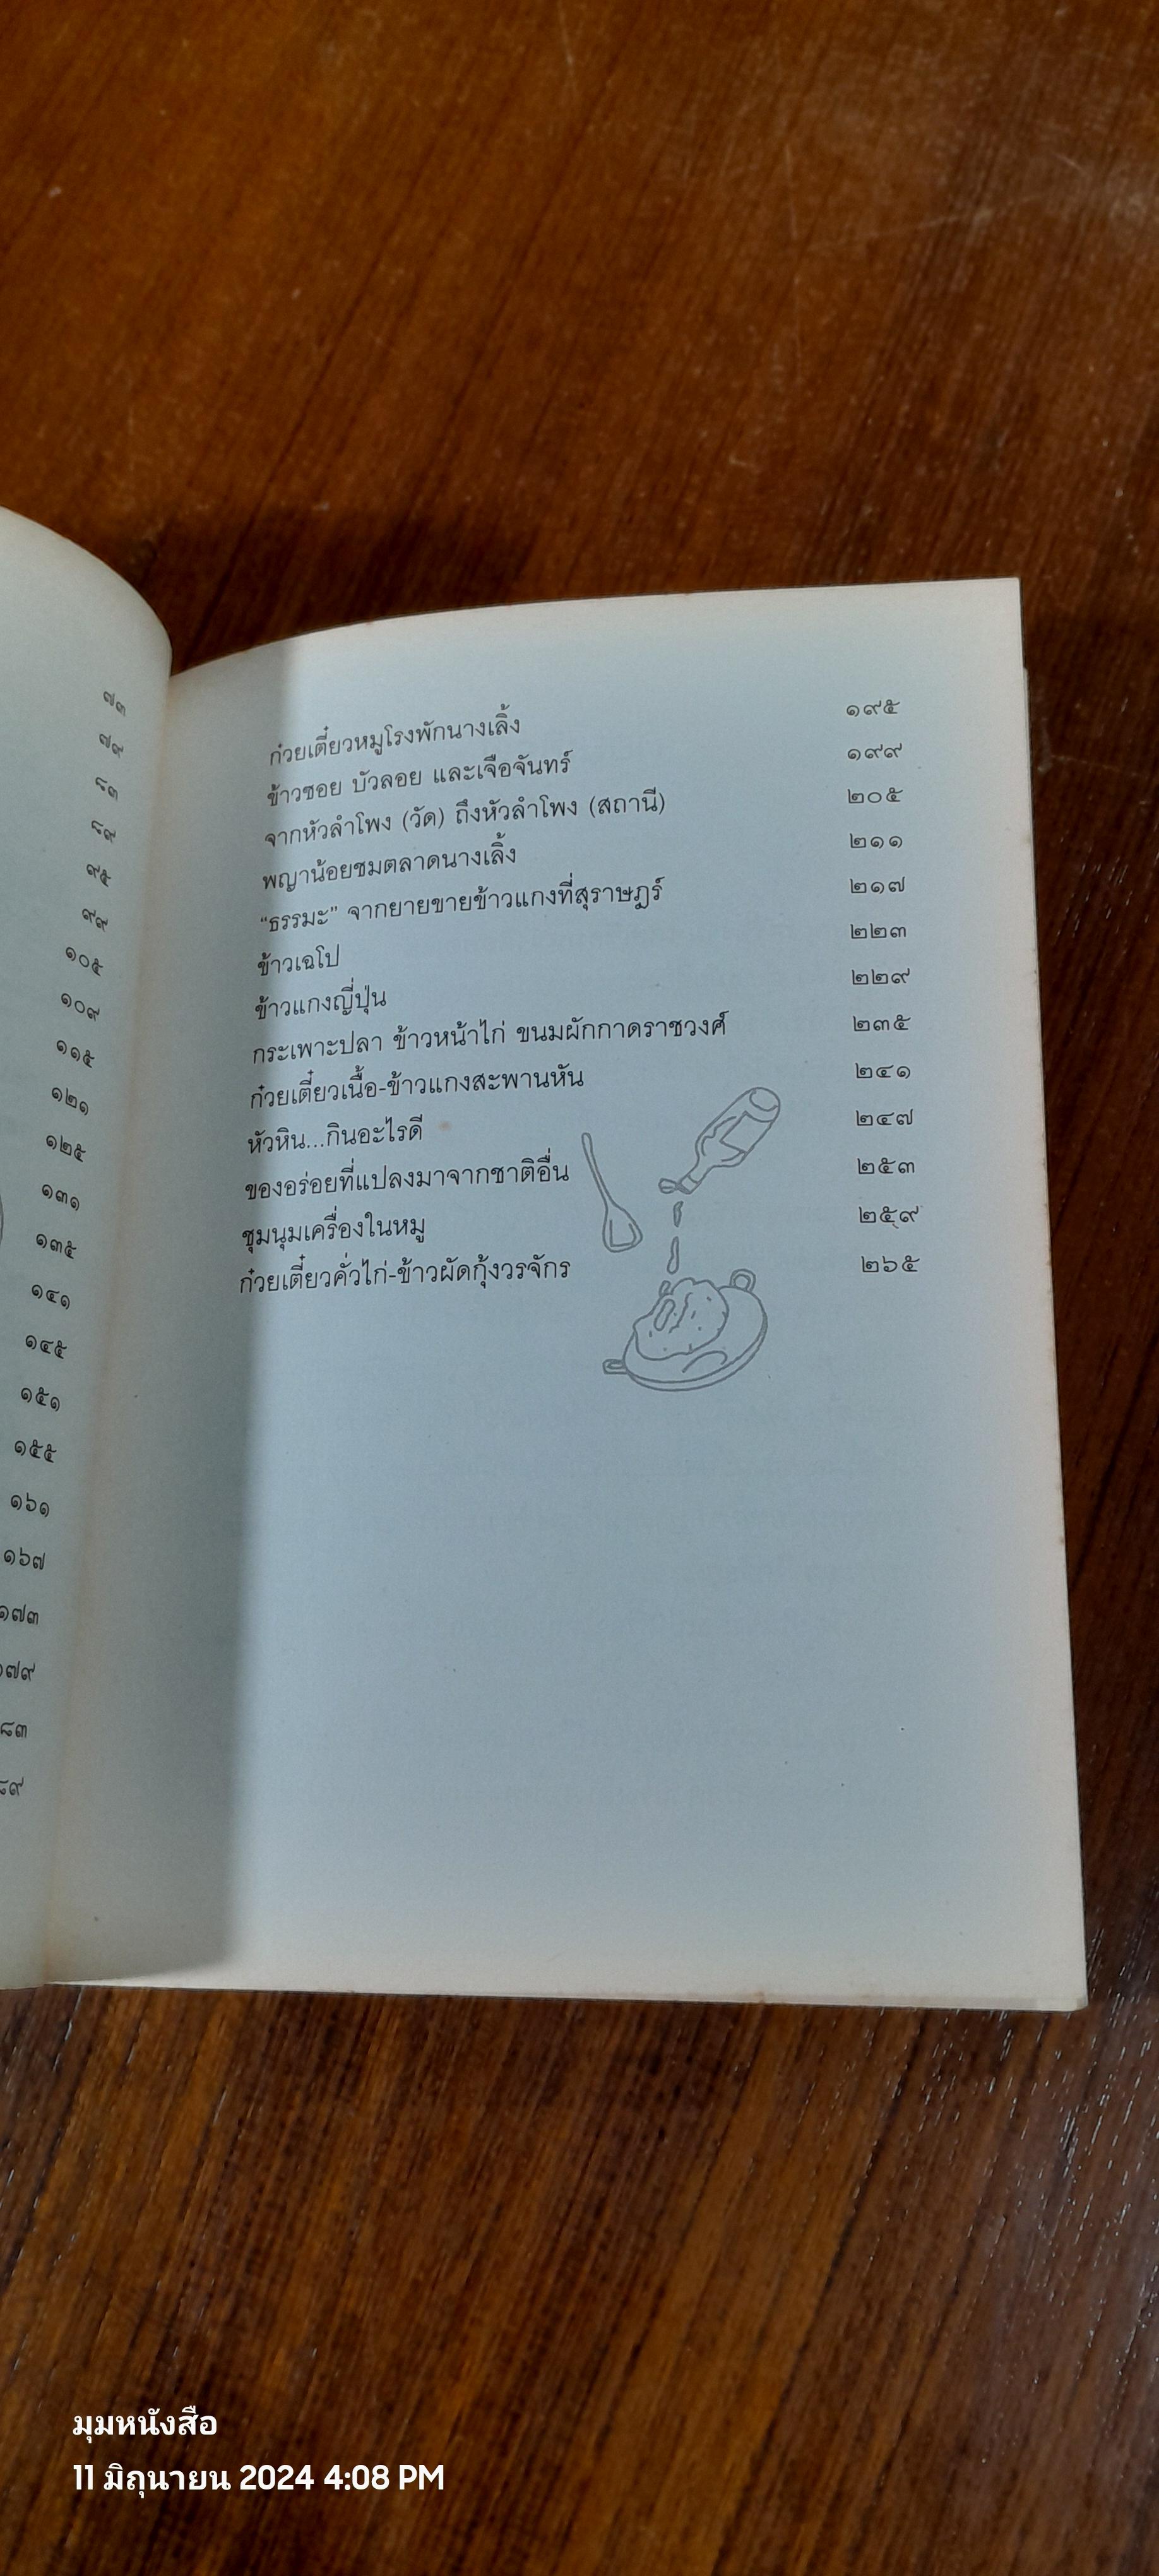 ๗๓
๗๙
๘๓
๘๙
๙๕
๙๙
๑๐๕
๑๐๙
๑๑๕
๑๒๑
๑๒๕
๑๓๑
๑๓๕
๑๔๑
๑๔๕
๑๕๑
๑๕๕
๑๖๑
๑๖๗
๑๗๓
๗๙
๘๓
๘๙
ก๋วยเตี๋ยวหมูโรงพักนางเลิ้ง ๑๙๕
ข้าวซอย บัวลอย และเจือจันทร์ ๑๙๙
จากหัวลำโพง (วัด) ถึงหัวลำโพง (สถานี) ๒๐๕
พญาน้อยชมตลาดนางเลิ้ง ๒๑๑
“ธรรมะ” จากยายขายข้าวแกงที่สุราษฎร์ ๒๑๗
ข้าวเฉโป ๒๒๓
ข้าวแกงญี่ปุ่น ๒๒๙
กระเพาะปลา ข้าวหน้าไก่ ขนมผักกาดราชวงศ์ ๒๓๕
ก๋วยเตี๋ยวเนื้อ-ข้าวแกงสะพานหัน ๒๔๑
หัวหิน...กินอะไรดี ๒๔๗
ของอร่อยที่แปลงมาจากชาติอื่น ๒๕๓
ชุมนุมเครื่องในหมู ๒๕๙
ก๋วยเตี๋ยวคั่วไก่-ข้าวผัดกุ้งวรจักร ๒๖๕
มุมหนังสือ
11 มิถุนายน 2024 4:08 PM